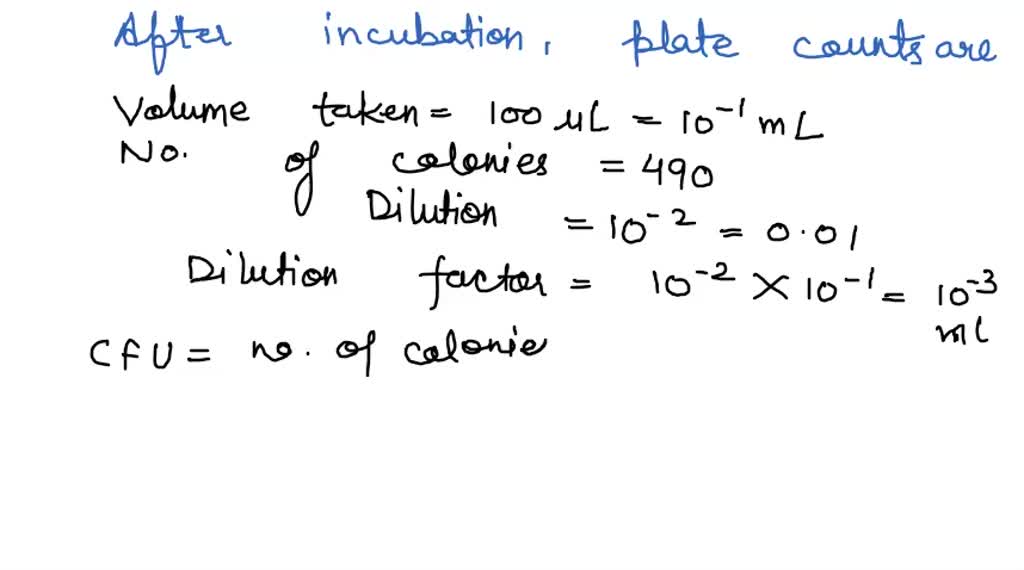 After incubation, plate counts are
Volume taken = 100 μL = 10⁻¹ mL
No. of colonies = 490
Dilution = 10⁻² = 0.01
Dilution factor = 10⁻² × 10⁻¹ = 10⁻³ ml
CFU = no. of colonie